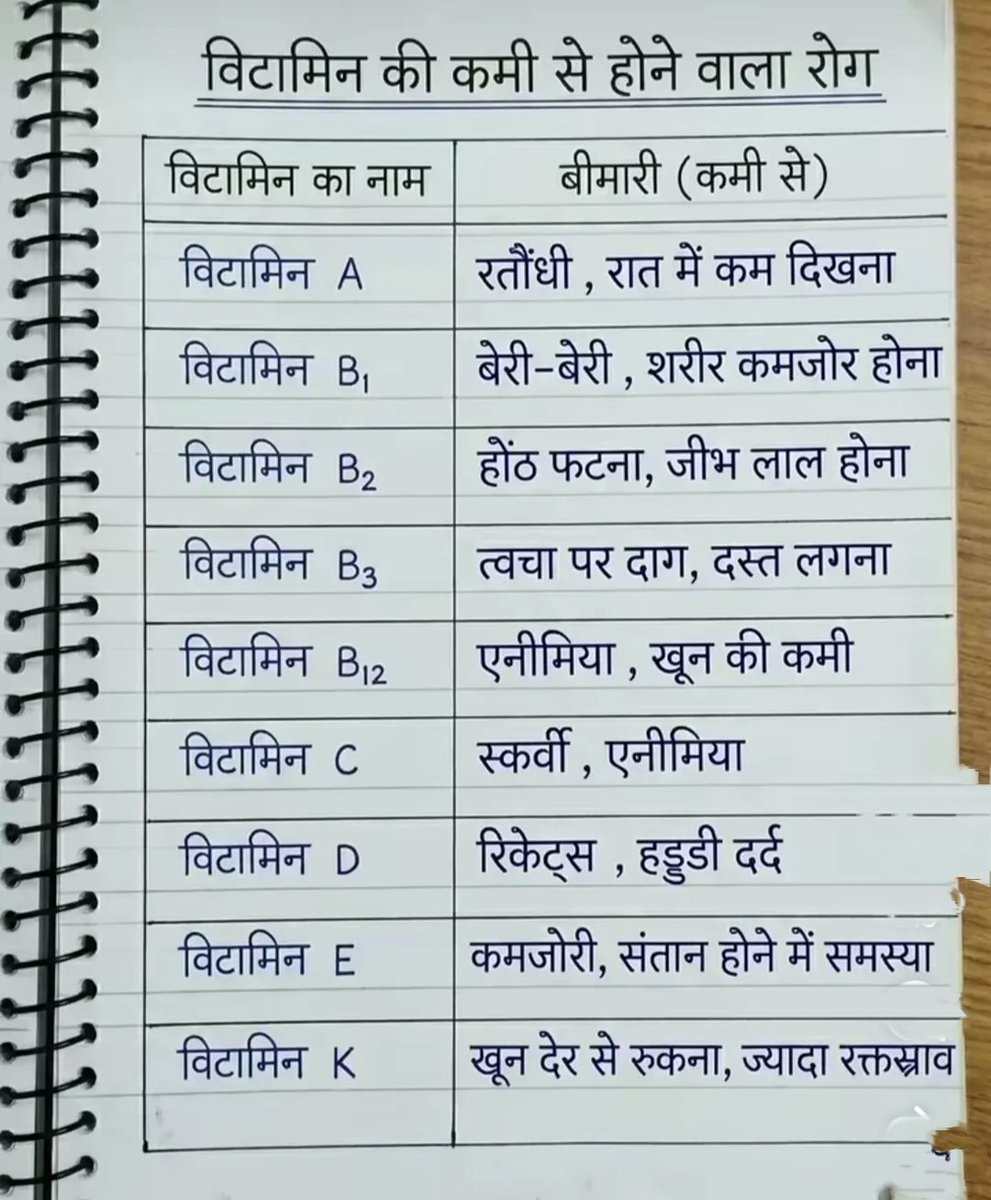 विटामिन की कमी से होने वाला रोग
विटामिन का नाम बीमारी (कमी से)
विटामिन A रतौंधी , रात में कम दिखना
विटामिन B₁ बेरी-बेरी , शरीर कमजोर होना
विटामिन B₂ होंठ फटना, जीभ लाल होना
विटामिन B₃ त्वचा पर दाग, दस्त लगना
विटामिन B₁₂ एनीमिया , खून की कमी
विटामिन C स्कर्वी , एनीमिया
विटामिन D रिकेट्स , हड्डुडी दर्द
विटामिन E कमजोरी, संतान होने में समस्या
विटामिन K खून देर से रुकना, ज्यादा रक्तस्राव